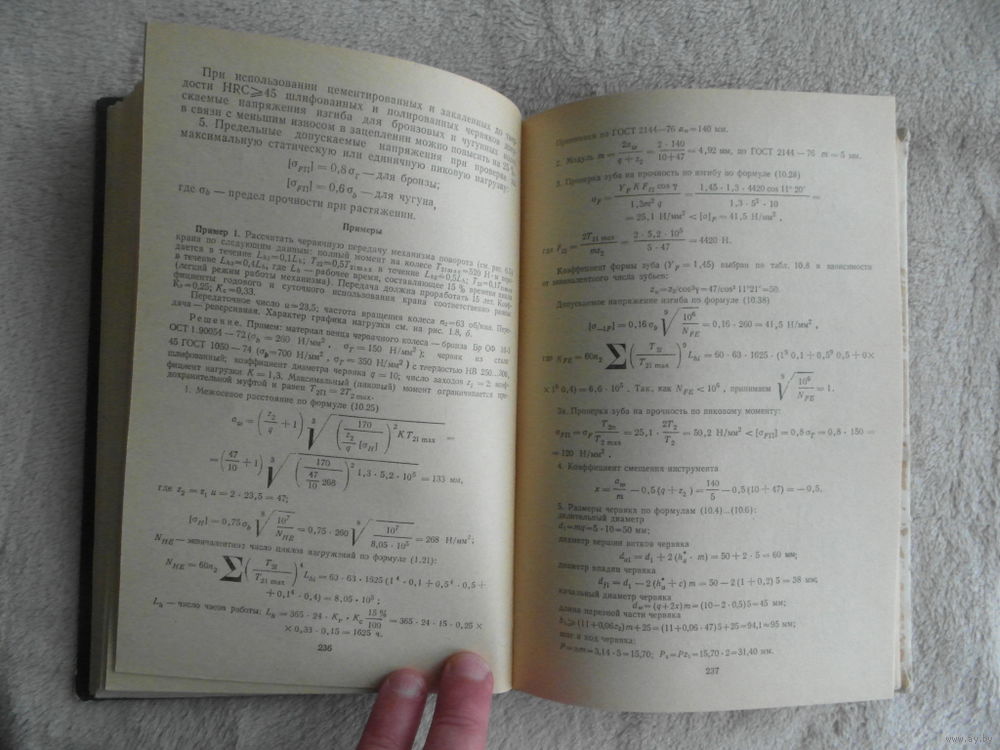 При использовании цементированных и закаленных до твер-
дости HRC⩾45 шлифованных и полированных червяков допу-
скаемые напряжения изгиба для бронзовых и чугунных
в связи с меньшим износом в зацеплении можно повысить на 25 %.
5. Предельные допускаемые напряжения при проверке на
максимальную статическую или единичную пиковую нагрузку:
[σFП] = 0,8 σт — для бронзы;
[σFП] = 0,6 σb — для чугуна,
где σb — предел прочности при растяжении.
Примеры
Пример 1. Рассчитать червячную передачу механизма поворота (см. рис.
крана по следующим данным: полный момент на колесе T21max = 520 Н·м пере-
дается в течение Lh1=0,1Lh; T22=0,5T21max в течение Lh2=0,5Lh;
в течение Lh3=0,4Lh, где Lh — рабочее время, составляющее 15 % времени цикла
(легкий режим работы механизма). Передача должна проработать 15 лет. Коэф-
фициенты годового и суточного использования крана соответственно равны:
Kг=0,25; Kс=0,33.
Передаточное число u=23,5; частота вращения колеса n2=63 об/мин. Пере-
дача — реверсивная. Характер графика нагрузки см. на рис. 1.8, б.
Решение. Примем: материал венца червячного колеса — бронза Бр ОФ 10-1
ОСТ 1.90054 — 72 (σb = 260 Н/мм², σт = 150 Н/мм²); червяк из стали
45 ГОСТ 1050 — 74 (σb=700 Н/мм², σт = 350 Н/мм²) с твердостью НВ 250...300,
шлифованный; коэффициент диаметра червяка q = 10; число заходов z1 = 2; коэф-
фициент нагрузки K = 1,3. Максимальный (пиковый) момент ограничивается пре-
дохранительной муфтой и равен T2П = 2T2max.
1. Межосевое расстояние по формуле (10.25)
aw = (z2/q + 1) ∛((170/(z2/q [σH]))² K T21 max) =
= (47/10 + 1) ∛((170/(47/10 268))² 1,3 · 5,2 · 10⁵) = 135 мм,
где z2 = z1 u = 2 · 23,5 = 47;
[σH] = 0,75 σb ⁹√(10⁷/NHE) = 0,75 · 260 ⁹√(10⁷/8,05 · 10⁵) = 268 Н/мм²;
NHE — эквивалентное число циклов нагружений по формуле (1.21):
NHE = 60n2 ∑(T2i/T21 max)⁴ Lhi = 63 · 63 · 1625 (1⁴ · 0,1 + 0,5⁴ · 0,5 +
+ 0,1⁴ · 0,4) = 8,05 · 10⁵;
Lh — число часов работы; Lh = 365 · 24 · Kг · Kс 15 %/100 = 365 · 24 · 15 · 0,25 ×
× 0,33 · 0,15 = 1625 ч.
236
Принимаем по ГОСТ 2144—76 aw=140 мм.
2. Модуль m = 2aw/(q + z2) = 2 · 140/(10+47) = 4,92 мм, по ГОСТ 2144 — 76 m = 5 мм.
3. Проверка зуба на прочность по изгибу по формуле (10.28)
σF = YF K Ft2 cos γ/(1,3m² q) = 1,45 · 1,3 · 4420 cos 11° 20′/(1,3 · 5² · 10) =
= 25,1 Н/мм² < [σ]F = 41,5 Н/мм²,
где Ft2 = 2T21 max/mz2 = 2 · 5,2 · 10⁵/(5 · 47) = 4420 Н.
Коэффициент формы зуба (YF = 1,45) выбран по табл. 10.8 в зависимости
от эквивалентного числа зубьев:
zv=z2/cos³γ=47/cos³ 11°21′=50.
Допускаемое напряжение изгиба по формуле (10.38)
[σ−1F] = 0,16 σb ⁹√(10⁶/NFE) = 0,16 · 260 = 41,5 Н/мм²,
где NFE = 60n2 ∑(T2i/T21 max)⁹ Lhi = 60 · 63 · 1625 · (1⁹ 0,1 + 0,5⁹ 0,5 + 0×
×1⁹ 0,4) = 6,0 · 10⁵. Так, как NFE < 10⁶, принимаем ⁹√(10⁶/NFE) = 1.
3а. Проверка зуба на прочность по пиковому моменту:
σFП = σF T2п/T2 max = 25,1 · 2T2/T2 = 50,2 Н/мм² < [σFП] = 0,8 σт = 0,8 · 150 =
= 120 Н/мм².
4. Коэффициент смещения инструмента
x = aw/m — 0,5 (q + z2) = 140/5 — 0,5 (10 + 47) = — 0,5.
5. Размеры червяка по формулам (10.4)...(10.6):
делительный диаметр
d1=mq=5·10=50 мм;
диаметр вершин витков червяка
da1 = d1 + 2 (h*a · m) = 50 + 2 · 5 = 60 мм;
диаметр впадин червяка
df1 = d1 — 2 (h*a + c) m = 50 — 2 (1 + 0,2) 5 = 38 мм;
начальный диаметр червяка
dw = (q +2x) m = (10 — 2 · 0,5) 5 = 45 мм;
длина нарезной части червяка
b1 ⩾ (11 + 0,06z2) m + 25 = (11 + 0,06 · 47) 5 + 25 = 94,1 ≈ 95 мм;
шаг и ход червяка:
P = πm = 3,14 · 5 = 15,70; Pz = Pz1 = 15,70 · 2 = 31,40 мм.
237
www.ay.by